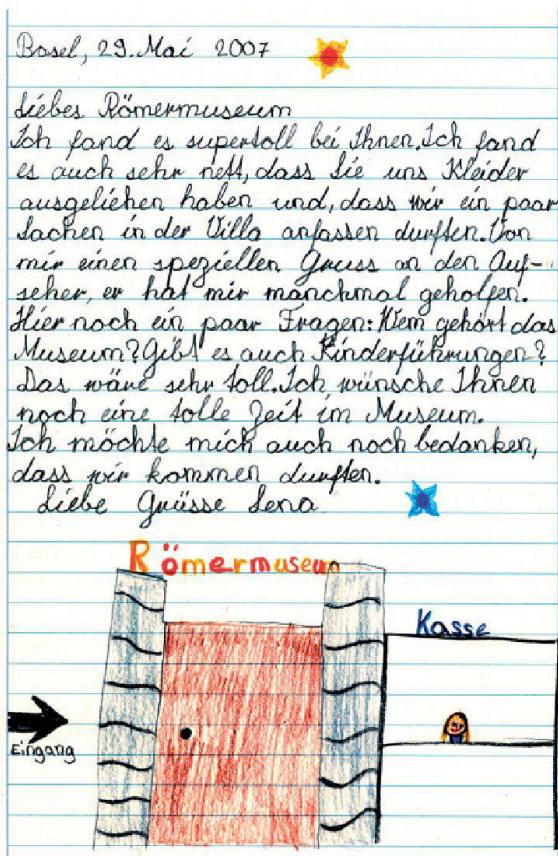 Basel, 29. Mai 2007
Liebes Römermuseum
Ich fand es supertoll bei Ihnen. Ich fand
es auch sehr nett, dass Sie uns Kleider
ausgeliehen haben und, dass wir ein paar
Sachen in der Villa anfassen durften. Von
mir einen speziellen Gruss an den Auf-
seher, er hat mir manchmal geholfen.
Hier noch ein paar Fragen: Wem gehört das
Museum? Gibt es auch Kinderführungen?
Das wäre sehr toll. Ich wünsche Ihnen
noch eine tolle Zeit im Museum.
Ich möchte mich auch noch bedanken,
dass wir kommen durften.
Liebe Grüsse Lena
Römermuseum
Kasse
Eingang